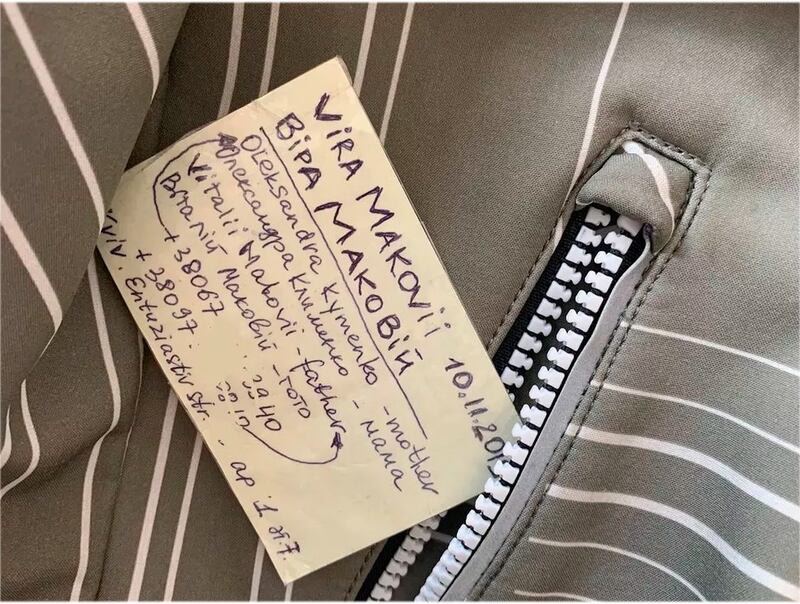 VIRA MAKOVII 10.11.201
ВІРА МАКОВІЙ
Oleksandra Kymenko - mother
Олександра Клименко - мама
Vitalii Makovii - father
Віталій Маковій - тато
+38067 40
+38097
Entuziastiv str.